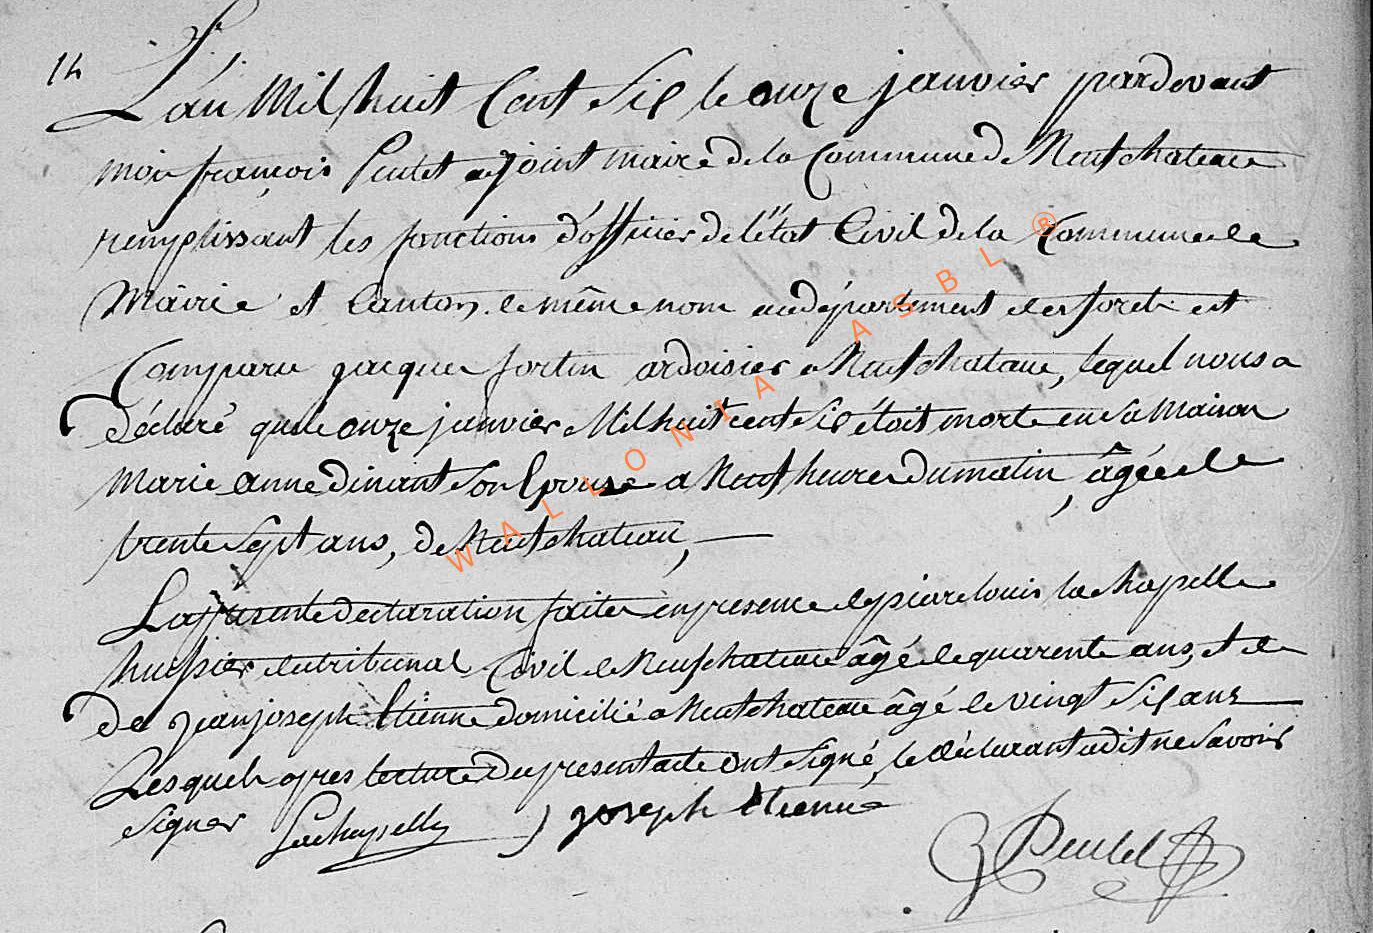 14
L'an Mil huit Cent Six le onze janvier pardevant
moi françois Peutet adjoint maire de la Commune de Neufchateau
remplissant les fonctions d'officier de l'état Civil de la Commune de
Mairie et Canton de même nom au département des forets est
Comparu jacque fortin ardoisier a Neufchateau, lequel nous a
Déclaré que le onze janvier Mil huit cent Six étoit morte en sa Maison
Marie anne Dinant son Epouse a Neuf heures du matin, âgée de
trente sept ans, de Neufchateau,
La presente declaration faite en presence de piere louis la chapelle
huissier du tribunal Civil de Neufchateau âgé de quarente ans, et de
De jean joseph Etienne domicilié a Neufchateau âgé de vingt Six ans
Lesquels apres lecture du present acte ont signé, le déclarant a dit ne savoir
signer Lachapelle joseph Etienne
WALLONIA ASBL ®